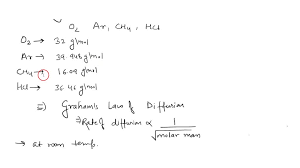 O₂, Ar, CH₄, HCl
O₂ → 32 g/mol
Ar → 39.948 g/mol
CH₄ → 16.04 g/mol
HCl → 36.46 g/mol
⇒ Graham's Law of Diffusion
⇒ Rate of diffusion ∝ 1/√molar mass
→ at room temp.